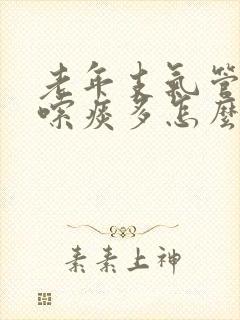 老年支氣管
嗽痰多怎麼
素素上神